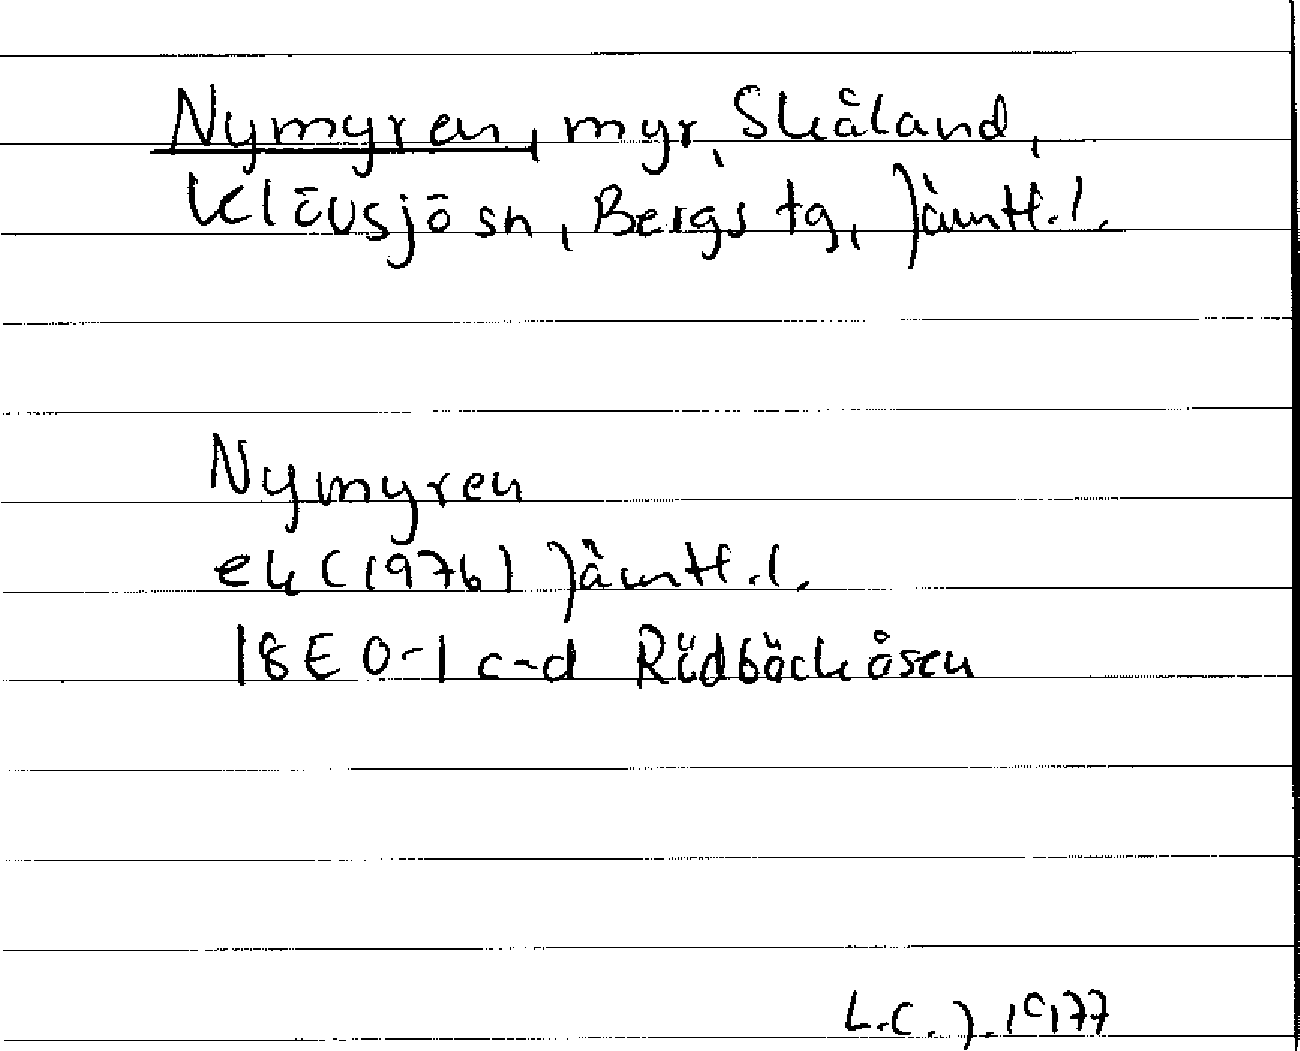 Nymyren, myr, Skåland,
Klövsjö sn, Bergs tg, Jämtl.l.
Nymyren
ek (1976) Jämtl.l.
18E 0-1 c-d Rödbäckåsen
L.C.J. 1977